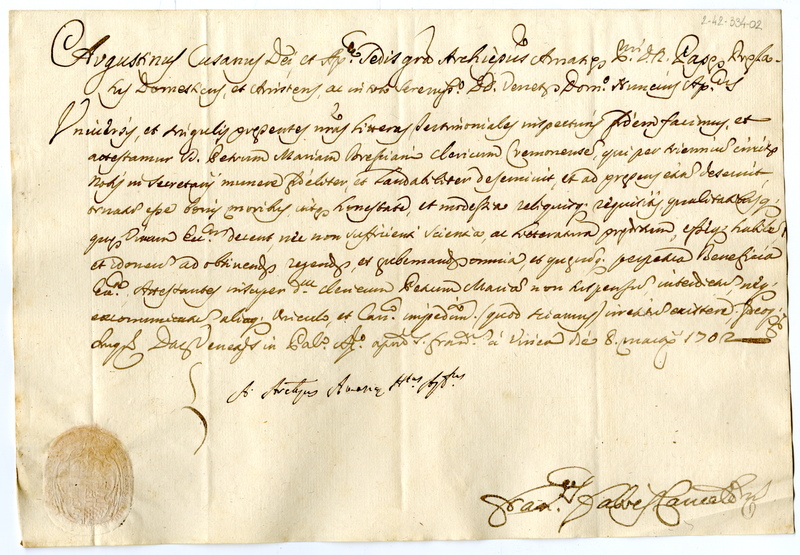 2-42-33402
Augustinus Cusanus Dei et Ap.cae Sedis gra Archiepus Amasię SSmi D. N. Papę Pręla-
tus Domesticus, et Assistens, ac in toto Serenmo Dd. Venetę Domo Nuncius Aplicus
Universis, et singulis pręsentes nras litteras testimoniales inspecturis fidem facimus, et
attestamur D. Petrum Mariam clericum Cremonensę, qui per triennium circiter
Nobis in Secretarii munere fideliter, et laudabiliter deservivit, et ad pręsens etiam deservit,
ornatum esse bonis moribus, vitę honestate, et modestia reliquisq. requisitis, qualitatibusq.
quę virum Ecc.m decent nec non sufficienti scientia, ac litteratura pręditum, esseq. habile
et idoneum ad obtinenda, regenda, et gubernanda omnia, et quęcumq. perpetua Beneficia
Ecc.ca Attestantes insuper dm clericum Petrum Mariam non suspensum interdictum neq.
excommunicatum aliove vinculo, et Can.co impedim. (quod sciamus) existere. In quor.
fidem Dat. Venetijs in Pal. Ap.co apud S. Franc. à Vinea die 8. martij 1702
A. Archpus Amasię Nus Aplicus
Fran.cus Cancells